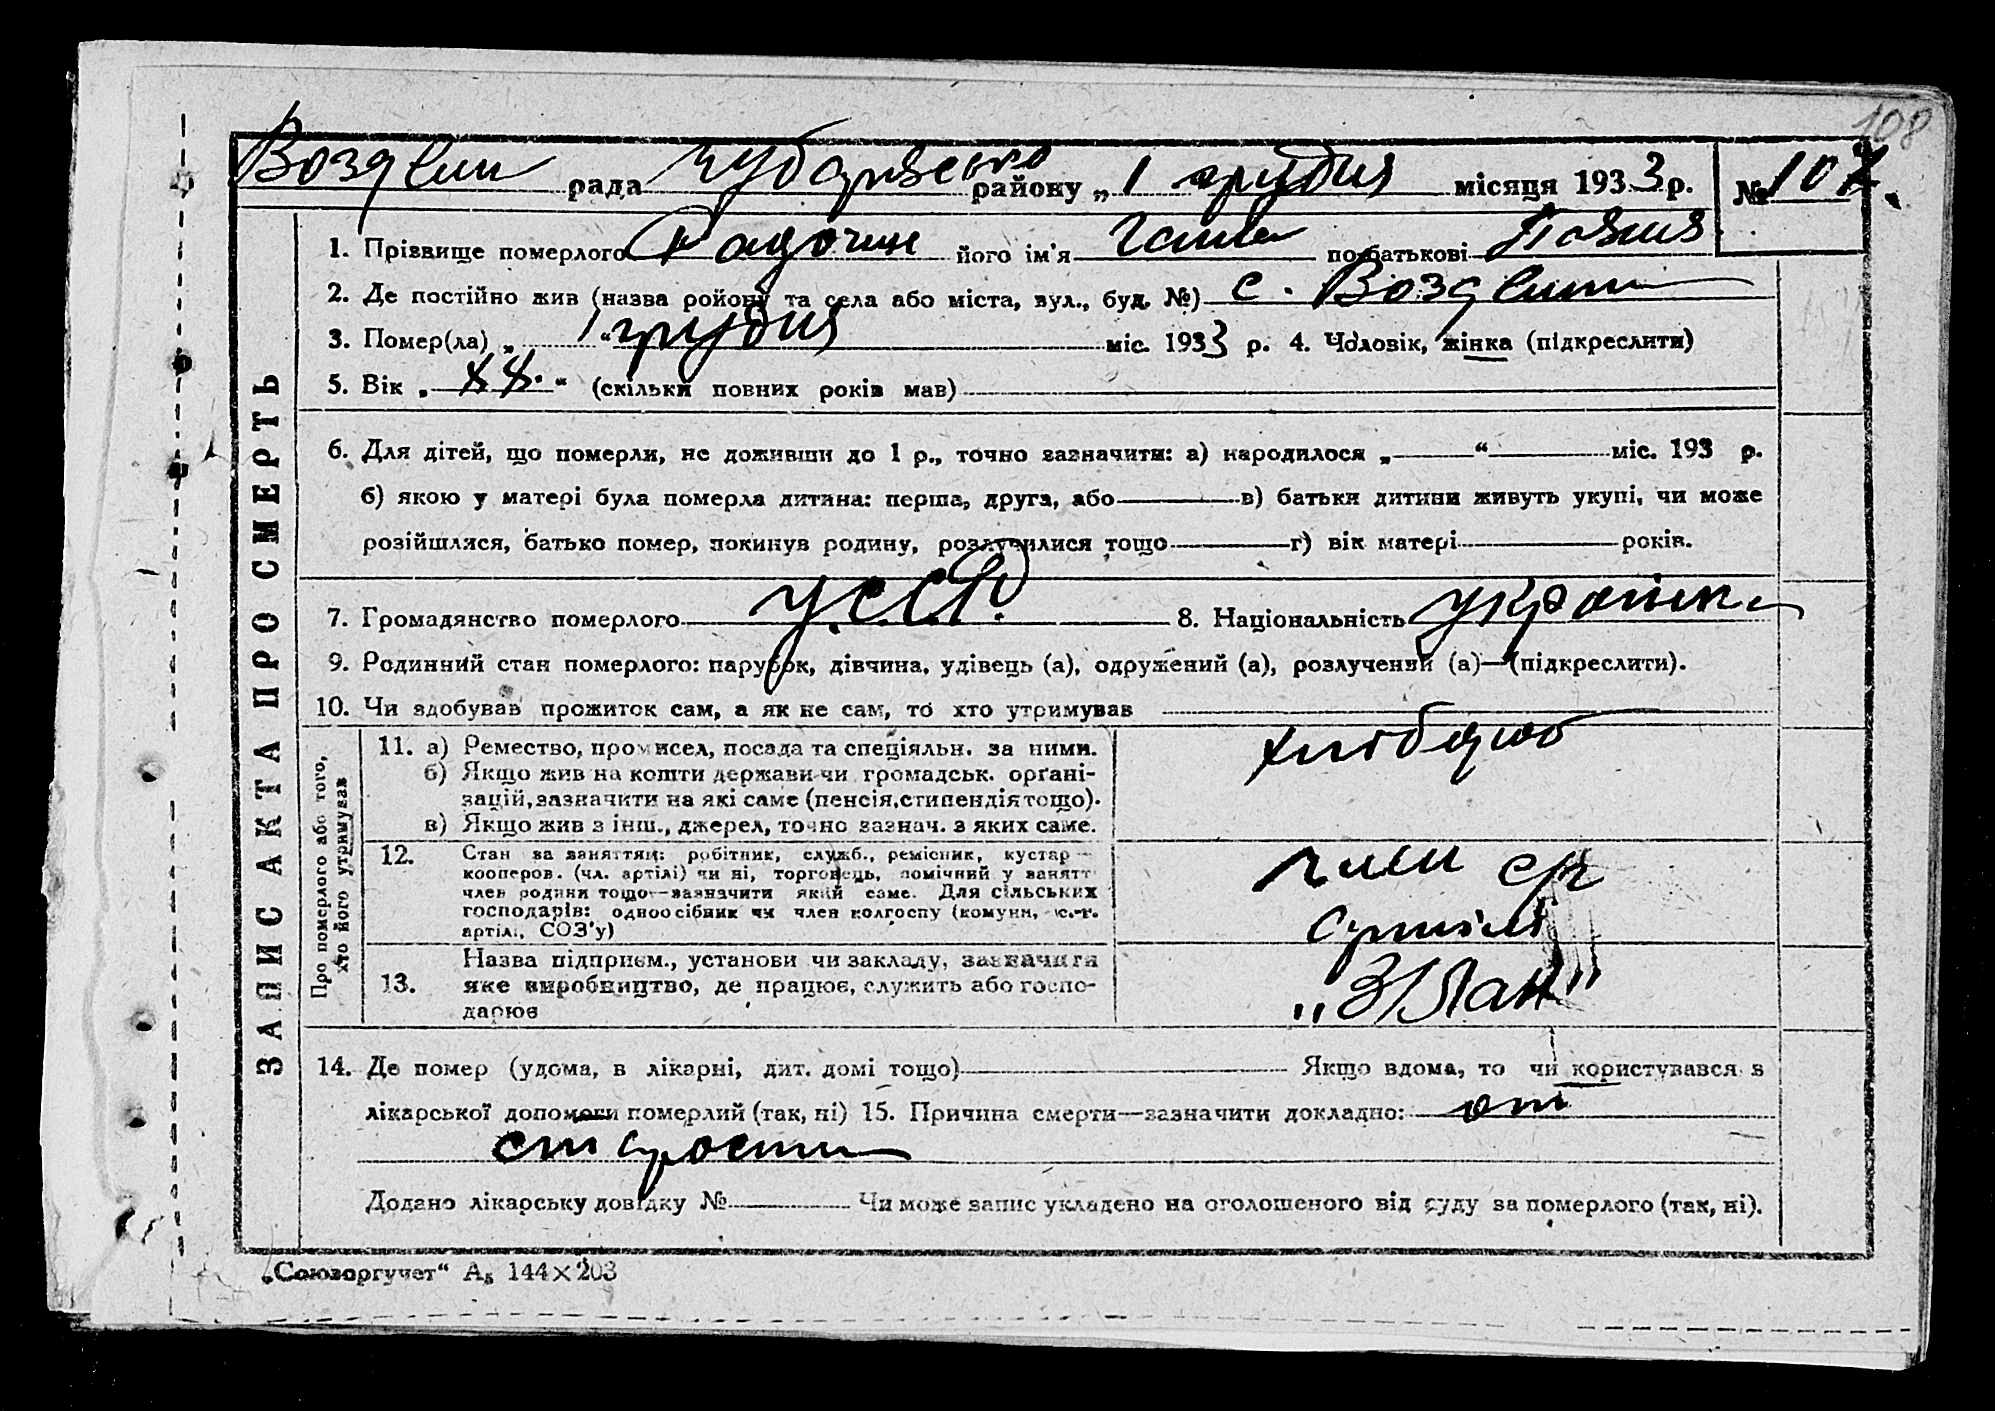 108
рада Чубарівсько району „ 1 грудня місяця 1933 р. № 107.
1. Прізвище померлого його ім'я Ганна по батькові
2. Де постійно жив (назва ройону та села або міста, вул., буд. №) с.
3. Помер(ла) „ 1 “ грудня міс. 1933 р. 4. Чоловік, жінка (підкреслити)
5. Вік „ “ (скільки повних років мав)
6. Для дітей, що померли, не доживши до 1 р., точно зазначити: а) народилося „ “ міс. 193 р.
б) якою у матері була померла дитина: перша, друга, або в) батьки дитини живуть укупі, чи може
розійшлися, батько помер, покинув родину, розлучилися тощо г) вік матері років.
7. Громадянство померлого У.С.С.Р. 8. Національність українка
9. Родинний стан померлого: парубок, дівчина, удівець (а), одружений (а), розлучений (а)—(підкреслити).
10. Чи здобував прожиток сам, а як не сам, то хто утримував
ЗАПИС АКТА ПРО СМЕРТЬ
Про померлого або того,
хто його утримував
11. а) Ремество, промисел, посада та спеціяльн. за ними.
б) Якщо жив на кошти держави чи громадськ. орґані-
зацій, зазначити на які саме (пенсія, стипендія тощо).
в) Якщо жив з інш., джерел, точно зазнач. з яких саме.
хлібороб
12. Стан за заняттям: робітник, служб., ремісник, кустар —
кооперов. (чл. артілі) чи ні, торговець, помічний у занятт
член родини тощо—зазначити який саме. Для сільських
господарів: одноосібник чи член колгоспу (комуни, с.-г.
артіл., СОЗ'у)
член с/г
артілі
13. Назва підприєм., установи чи закладу, зазначити
яке виробництво, де працює, служить або госпо-
дарює
14. Де помер (удома, в лікарні, дит. домі тощо) Якщо вдома, то чи користувався з
лікарської допомоги померлий (так, ні) 15. Причина смерти—зазначити докладно: от
старости
Додано лікарську довідку № Чи може запис укладено на оголошеного від суду за померлого (так, ні).
„Союзоргучет“ А₅ 144×203